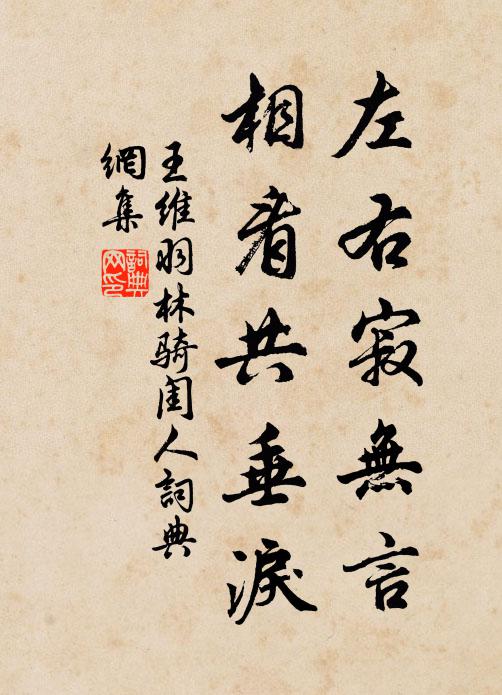 左右寂無言
相看共垂淚
王維羽林骑闺人詞典
網集
詞典網印